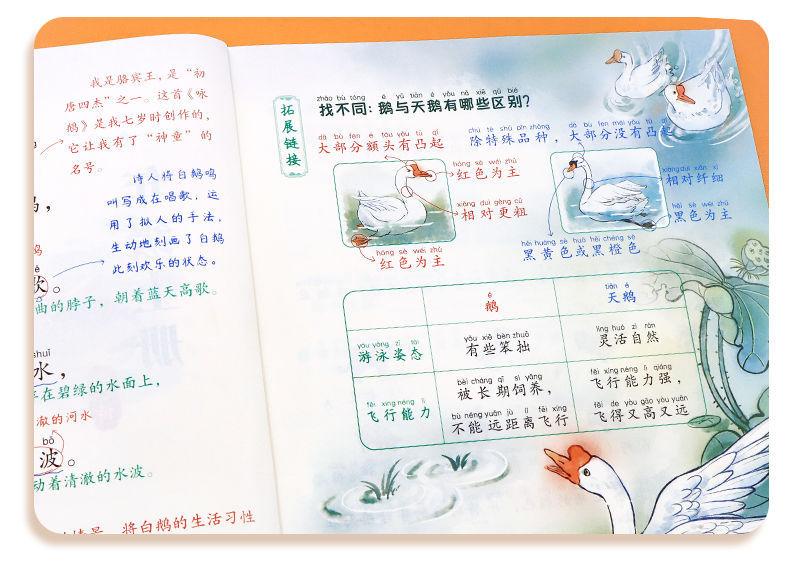 我是骆宾王，是“初
唐四杰”之一。这首《咏
鹅》是我七岁时创作的，
它让我有了“神童”的
名号。
诗人将白鹅鸣
叫写成在唱歌，运
用了拟人的手法，
生动地刻画了白鹅
此刻欢乐的状态。
歌。
曲的脖子，朝着蓝天高歌。
shuǐ
水，
在碧绿的水面上，
澈的河水
bō
波。
动着清澈的水波。
将白鹅的生活习性
拓展链接
zhǎo bù tóng é yǔ tiān é yǒu nǎ xiē qū bié
找不同：鹅与天鹅有哪些区别？
dà bù fen é tóu yǒu tū qǐ
大部分额头有凸起
hóng sè wéi zhǔ
红色为主
xiāng duì gèng cū
相对更粗
hóng sè wéi zhǔ
红色为主
chú tè shū pǐn zhǒng dà bù fen méi yǒu tū qǐ
除特殊品种，大部分没有凸起
xiāng duì xiān xì
相对纤细
hēi sè wéi zhǔ
黑色为主
hēi huáng sè huò hēi chéng sè
黑黄色或黑橙色
é tiān é
鹅 天鹅
yóu yǒng zī tài yǒu xiē bèn zhuō líng huó zì rán
游泳姿态 有些笨拙 灵活自然
bèi cháng qī sì yǎng fēi xíng néng lì qiáng
被长期饲养， 飞行能力强，
fēi xíng néng lì bù néng yuǎn jù lí fēi xíng fēi de yòu gāo yòu yuǎn
飞行能力 不能远距离飞行 飞得又高又远